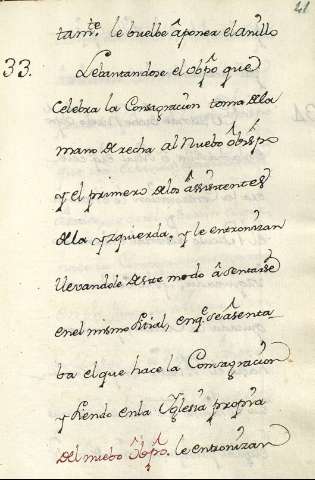 41
tamte. le buelbe â poner el anillo
33.
Lebantandose el obpo que
Celebra la Consagracion toma de la
mano derecha al Nuebo obispo
y el primero de los âssistentes
de la yzquierda, y le entronizan
llevandole deste modo â sentarse
en el mismo sitial, enqe. se âsenta-
ba el que hace la Consagracion
y siendo en la Yglesia propria
del nuebo obpo. le entronizan